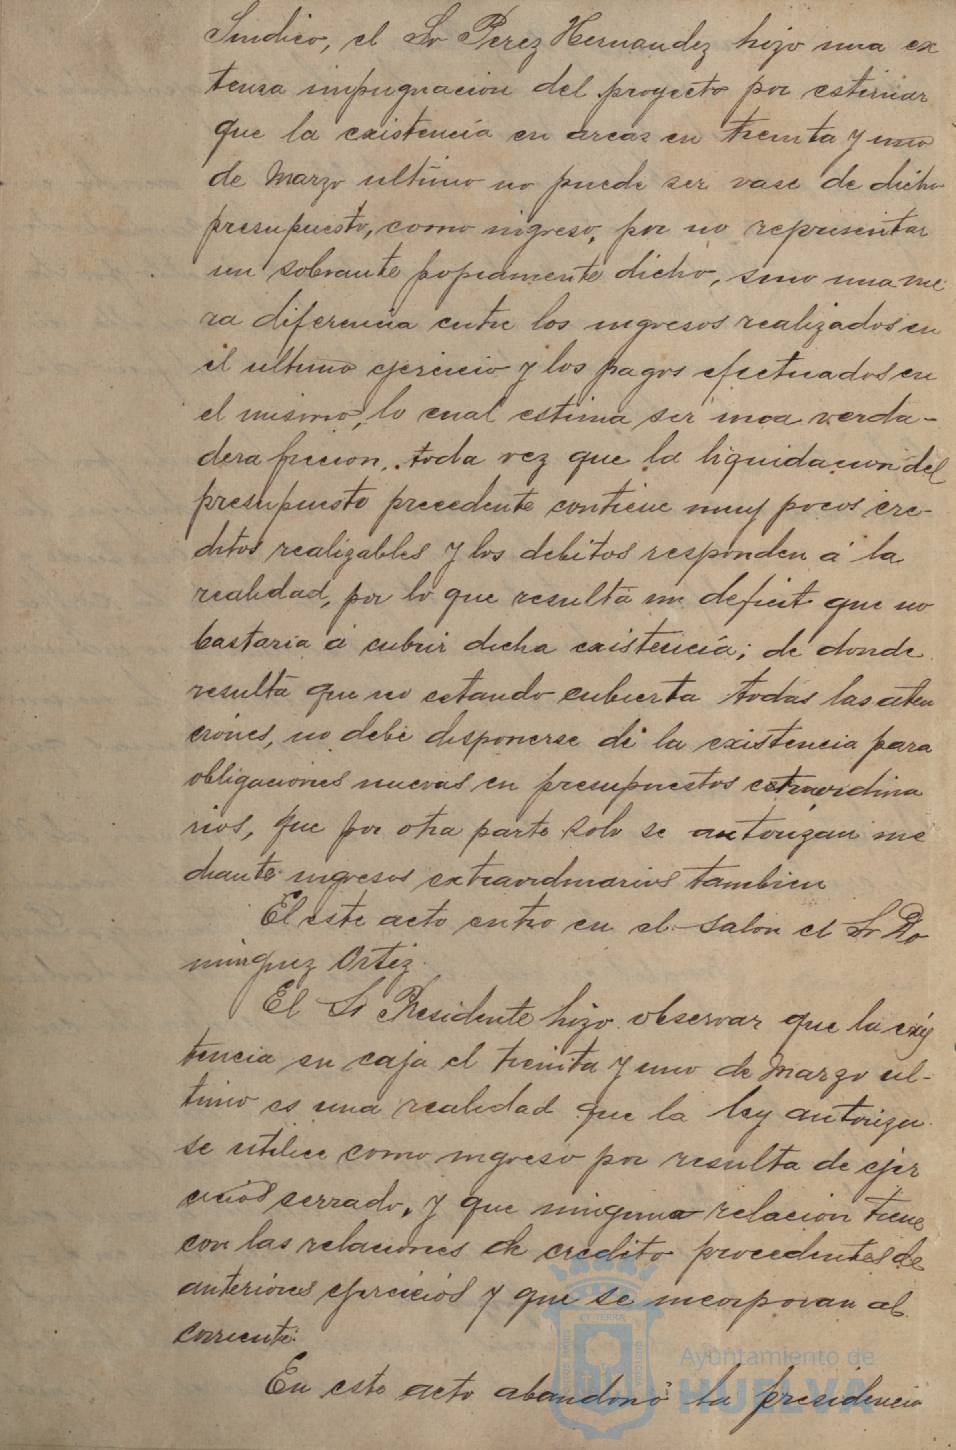 Sindico, el Sr Perez Hernandez hizo una ex
tensa impugnacion del proyecto por estimar
que la existencia en arcas en treinta y uno
de Marzo ultimo no puede ser vase de dicho
presupuesto, como ingreso, por no representar
un sobrante popiamente dicho, sino una me
ra diferencia entre los ingresos realizados en
el ultimo ejercicio y los pagos efectuados en
el mismo, lo cual estima ser una verda-
dera ficcion, toda vez que la liquidacion del
presupuesto precedente contiene muy pocos cre-
ditos realizables y los debitos responden á la
realidad, por lo que resulta un deficit que no
bastaria á cubrir dicha existencia; de donde
resulta que no estando cubierta todas las aten
ciones, no debe disponerse de la existencia para
obligaciones nuevas en presupuestos extraordina
rios, que por otra parte solo se autorizan me
diante ingresos extraordinarios tambien
El este acto entro en el salon el Sr Do
minguez Ortiz.
El Sr Presidente hizo observar que la exis
tencia en caja el treinta y uno de Marzo ul-
timo es una realidad que la ley autoriza
se utilice como ingreso por resulta de ejer
cicios serrado, y que ninguna relacion tiene
con las relaciones de credito procedentes de
anteriores ejercicios y que se incorporan al
corriente.
En este acto abandonó la presidencia
Ayuntamiento de
HUELVA